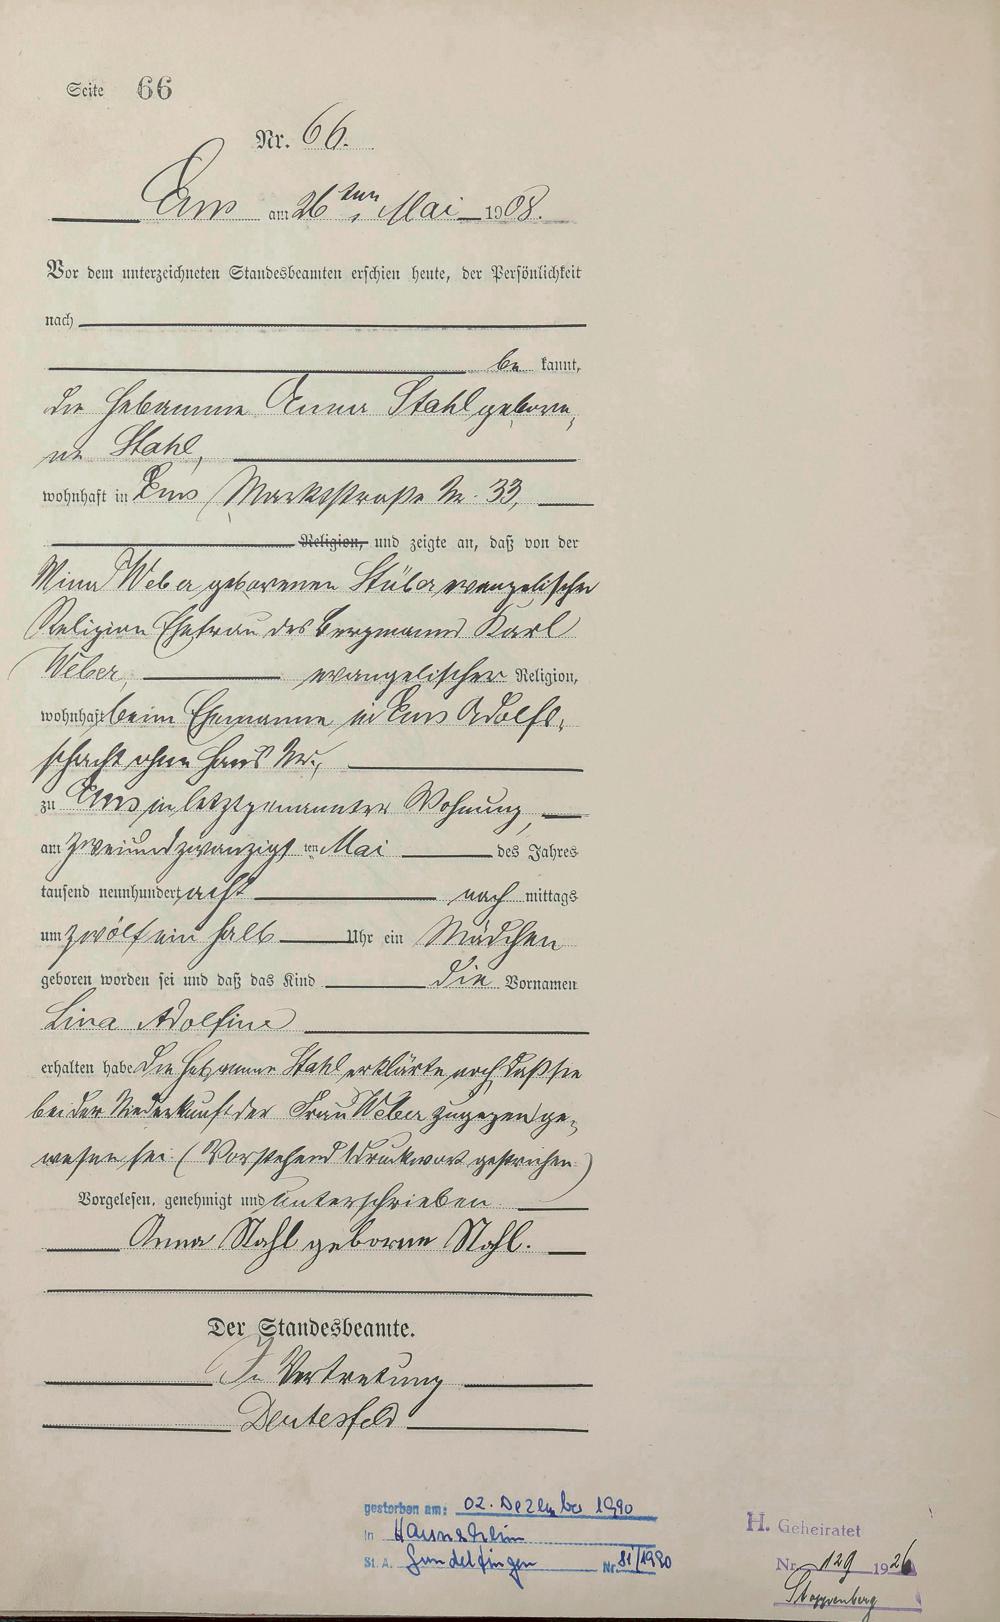 Seite 66
Nr. 66.
Ems am 26ten Mai 1908.
Vor dem unterzeichneten Standesbeamten erschien heute, der Persönlichkeit
nach
be kannt,
die Hebamme Anna Stahl gebore-
ne Stahl,
wohnhaft in Ems Marktstraße Nr. 33,
Religion, und zeigte an, daß von der
Mina Weber geborenen Stüber evangelischer
Religion Ehefrau des Bergmanns Karl
Weber, evangelischer Religion,
wohnhaft beim Ehemanne in Ems Adolfs-
schacht ohne Haus Nr.,
zu Ems in letztgenannter Wohnung,
am zweiundzwanzigsten Mai des Jahres
tausend neunhundert acht nach mittags
um zwölf ein halb Uhr ein Mädchen
geboren worden sei und daß das Kind die Vornamen
Lina Adolfine
erhalten habe. Die Hebamme Stahl erklärte noch, daß sie
bei der Niederkunft der Frau Weber zugegen ge-
wesen sei. (Vorstehend 1 Druckwort gestrichen.)
Vorgelesen, genehmigt und unterschrieben
Anna Stahl geborne Stahl.
Der Standesbeamte.
In Vertretung
gestorben am: 02. Dezember 1990
in
St. A. Gundelfingen Nr. 81/1990
H. Geheiratet
Nr. 129 1926
Stoppenberg